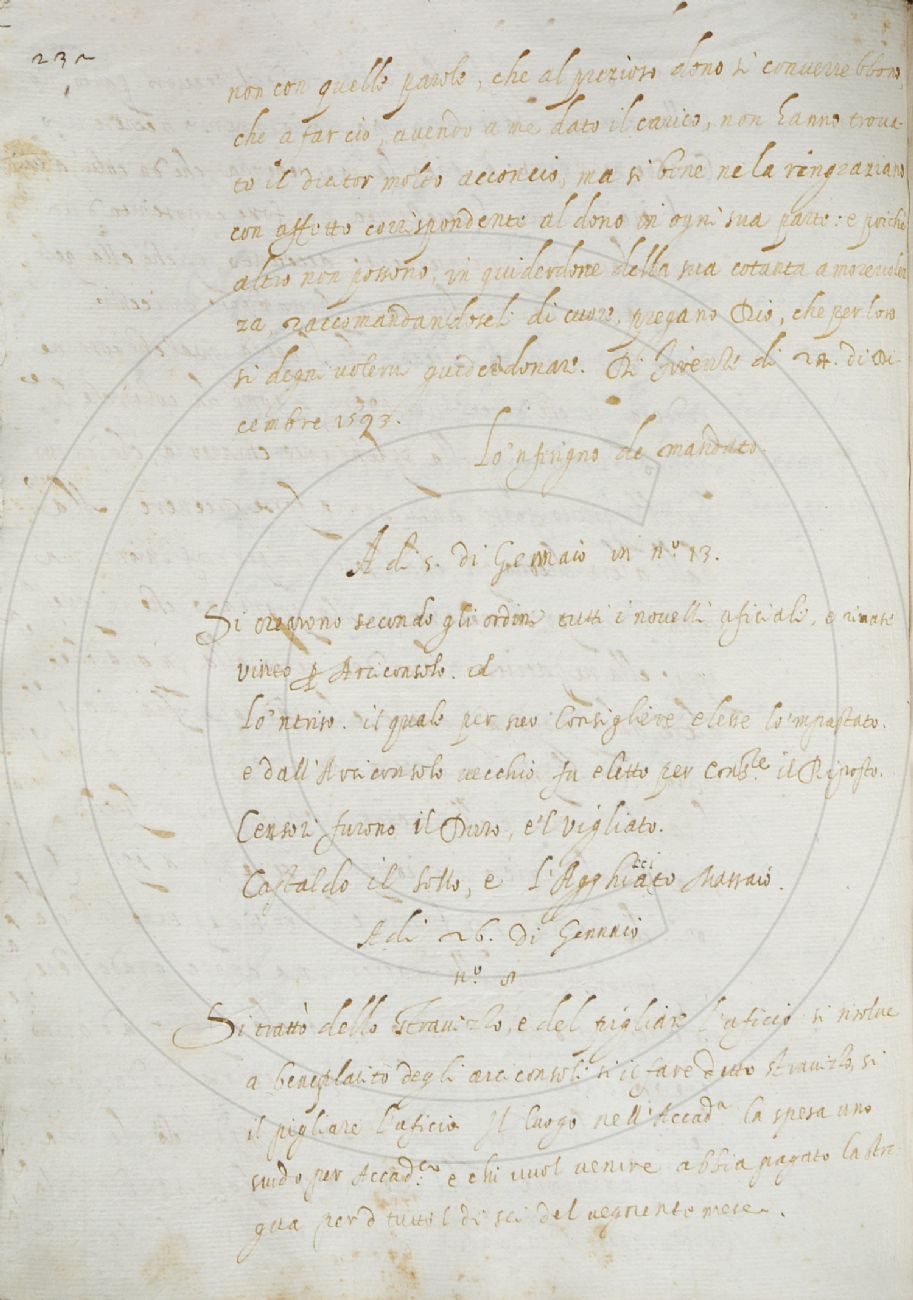 232
non con quelle parole, che al prezioso dono si converrebbono,
che a far ciò, avendo a me dato il carico, non hanno trova-
to il dicitor molto acconcio, ma si bene ne la ringraziano
con affetto corrispondente al dono in ogni sua parte: e poichè
altro non possono, in guiderdone della sua cotanta amorevolez
za, raccomandandoseli di cuore, pregano Dio, che per loro
si degni volerli guiderdonare. Di Firenze di 24. di Di-
cembre 1593.
Lo 'nferigno de mandato.
A di 5. di Gennaio in n.o 13.
Si crearono secondo gli ordini tutti i novelli uficiali, e rimase
vinto p Arciconsolo. il
Lo 'ntriso. il quale per suo Consigliere elesse lo 'mpastato.
e dall'Arciconsolo vecchio fu eletto per Cons.re il Riposto.
Censori furono il Duro, e 'l Vigliato.
Castaldo il Sollo, e l'Agghiacciato Massaio.
A di 26. di Gennaio
n.o 8
Si trattò dello Stravizzo, e del pigliare l'uficio si risolve
a beneplacito degli arciconsoli si il fare detto stravizzo, si
il pigliare l'uficio. Il luogo nell'Accad.a la spesa uno
scudo per Accad.co e chi vuol venire abbia pagato la stre-
gua per tutto l dì sei del vegnente mese.